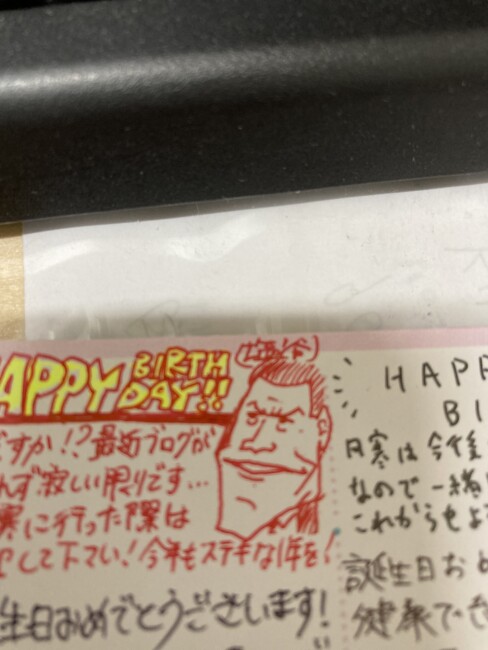 HAPPY BIRTH
DAY!!
ですか!?最近ブログが
れず寂しい限りです…
に行った際は
して下さい!今年もステキな1年を!
生日おめでとうございます!
HAPP
BI
月寒は今後
なので一緒
これからもよ
誕生日おめ
健康でき